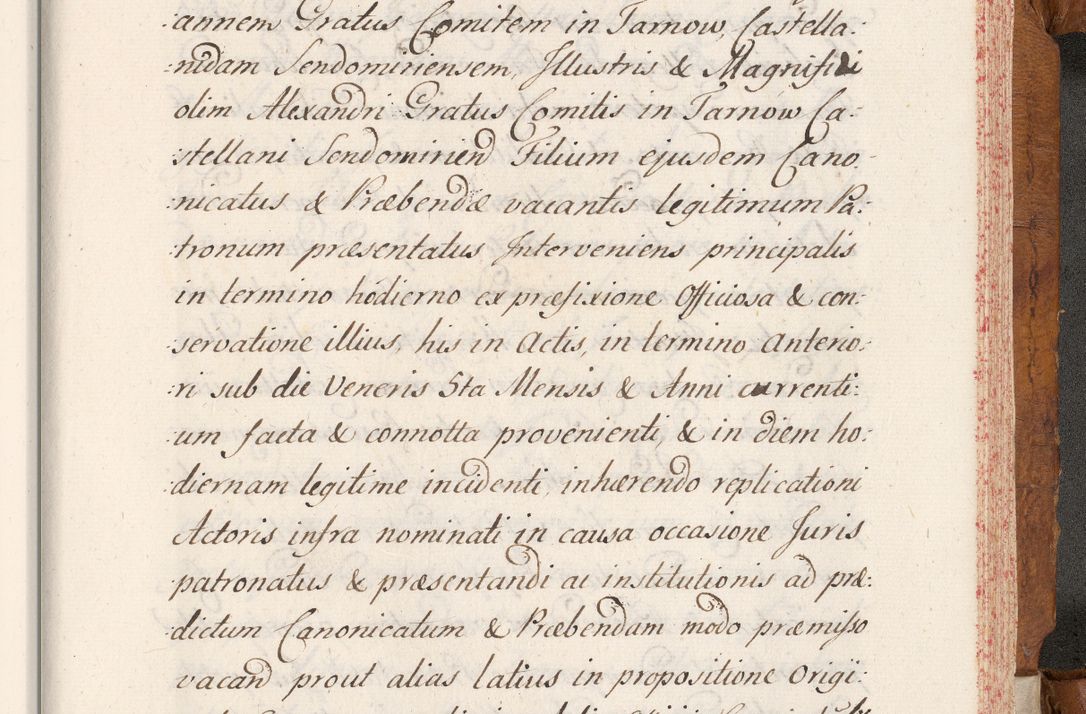 annem Gratus Comitem in Tarnow, Castella:
nidam Sendomiriensem, Illustris & Magnifici
olim Alexandri Gratus Comitis in Tarnow Ca:
:stellani Sendomirien Filium ejusdem Cano:
:nicatus & Præbendæ vacantis legitimum Pa:
:tronum præsentatus Interveniens principalis
in termino hodierno ex præfixione Officiosa & con:
:servatione illius, his in Actis, in termino Anterio:
:ri sub die Veneris 5ta Mensis & Anni currenti:
:um facta & connotta provenienti, & in diem ho:
:diernam legitime incidenti, inhærendo replicationi
Actoris infra nominati in causa occasione Juris
patronatus & præsentandi ac institutionis ad præ:
:dictum Canonicatum & Præbendam modo præmisso
vacand prout alias latius in propositione Origi: